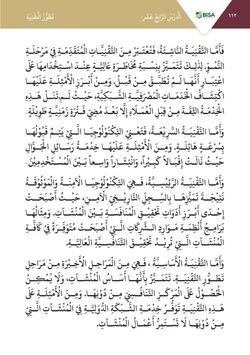 ١١٢
BISA
الدَّرْسُ الرَّابِعَ عَشَرَ
تَطَوُّرُ التِّقْنِيَةِ
فَأَمَّا التِّقْنِيَةُ النَّاشِئَةُ، فَتُعْتَبَرُ مِنَ التِّقْنِيَاتِ الْمُتَقَدِّمَةِ فِي مَرْحَلَةِ
النُّمُوِّ، لِذَلِكَ تَتَمَيَّزُ بِنِسْبَةِ مُخَاطَرَةٍ عَالِيَةٍ عِنْدَ اسْتِخْدَامِهَا عَلَى
اعْتِبَارِ أَنَّهَا لَمْ تُطَبَّقْ مِنْ قَبْلُ. وَمِنْ أَبْرَزِ الْأَمْثِلَةِ عَلَيْهَا
اكْتِشَافُ الْخَدَمَاتِ الْمَصْرِفِيَّةِ الشَّبَكِيَّةِ، حَيْثُ لَمْ تَنَلْ هَذِهِ
الْخِدْمَةُ الثِّقَةَ مِنْ قِبَلِ الْعُمَلَاءِ إِلَّا بَعْدَ مُضِيِّ فَتْرَةٍ زَمَنِيَّةٍ طَوِيلَةٍ.
وَأَمَّا التِّقْنِيَةُ السَّرِيعَةُ، فَتَعْنِي التِّكْنُولُوجِيَا الَّتِي يَتِمُّ قَبُولُهَا
بِسُرْعَةٍ فَائِقَةٍ. وَمِنَ الْأَمْثِلَةِ عَلَيْهَا خِدْمَةُ رَسَائِلِ الْجَوَّالِ
حَيْثُ نَالَتْ إِقْبَالًا كَبِيرًا، وَانْتِشَارًا وَاسِعًا بَيْنَ الْمُسْتَخْدِمِينَ.
وَأَمَّا التِّقْنِيَةُ الرَّئِيسِيَّةُ، فَهِيَ التِّكْنُولُوجِيَا الْآمِنَةُ وَالْمَوْثُوقَةُ
نَتِيجَةَ تَمَيُّزِهَا بِالسِّجِلِّ التَّارِيخِيِّ الْآمِنِ، حَيْثُ أَصْبَحَتْ
إِحْدَى أَبْرَزِ أَدَوَاتِ تَحْقِيقِ الْمُنَافَسَةِ بَيْنَ الْمُنْشَآتِ. وَمِثَالُهَا
بَرَامِجُ أَنْظِمَةِ مَوَارِدِ الشَّرِكَاتِ الَّتِي أَصْبَحَتْ مُتَوَفِّرَةً فِي كَافَّةِ
الْمُنْشَآتِ الَّتِي تُرِيدُ تَحْقِيقَ التَّنَافُسِيَّةِ الْعَالِيَةِ.
وَأَمَّا التِّقْنِيَةُ الْأَسَاسِيَّةُ، فَهِيَ مِنَ الْمَرَاحِلِ الْأَخِيرَةِ مِنْ مَرَاحِلِ
تَطَوُّرِ التِّقْنِيَةِ. تَتَمَيَّزُ بِأَنَّهَا أَسَاسُ الْمُنْشَآتِ، وَلَا يُمْكِنُ
الْحُصُولُ عَلَى الْمَرْكَزِ التَّنَافُسِيِّ مِنْ دُونِهَا. وَمِنَ الْأَمْثِلَةِ عَلَى
هَذِهِ التِّقْنِيَةِ تَوَفُّرُ خِدْمَةِ الشَّبَكَةِ الدَّوْلِيَّةِ فِي الْمُنْشَآتِ الَّتِي
مِنْ دُونِهَا لَا تَسْتَمِرُّ أَعْمَالُ الْمُنْشَآتِ.